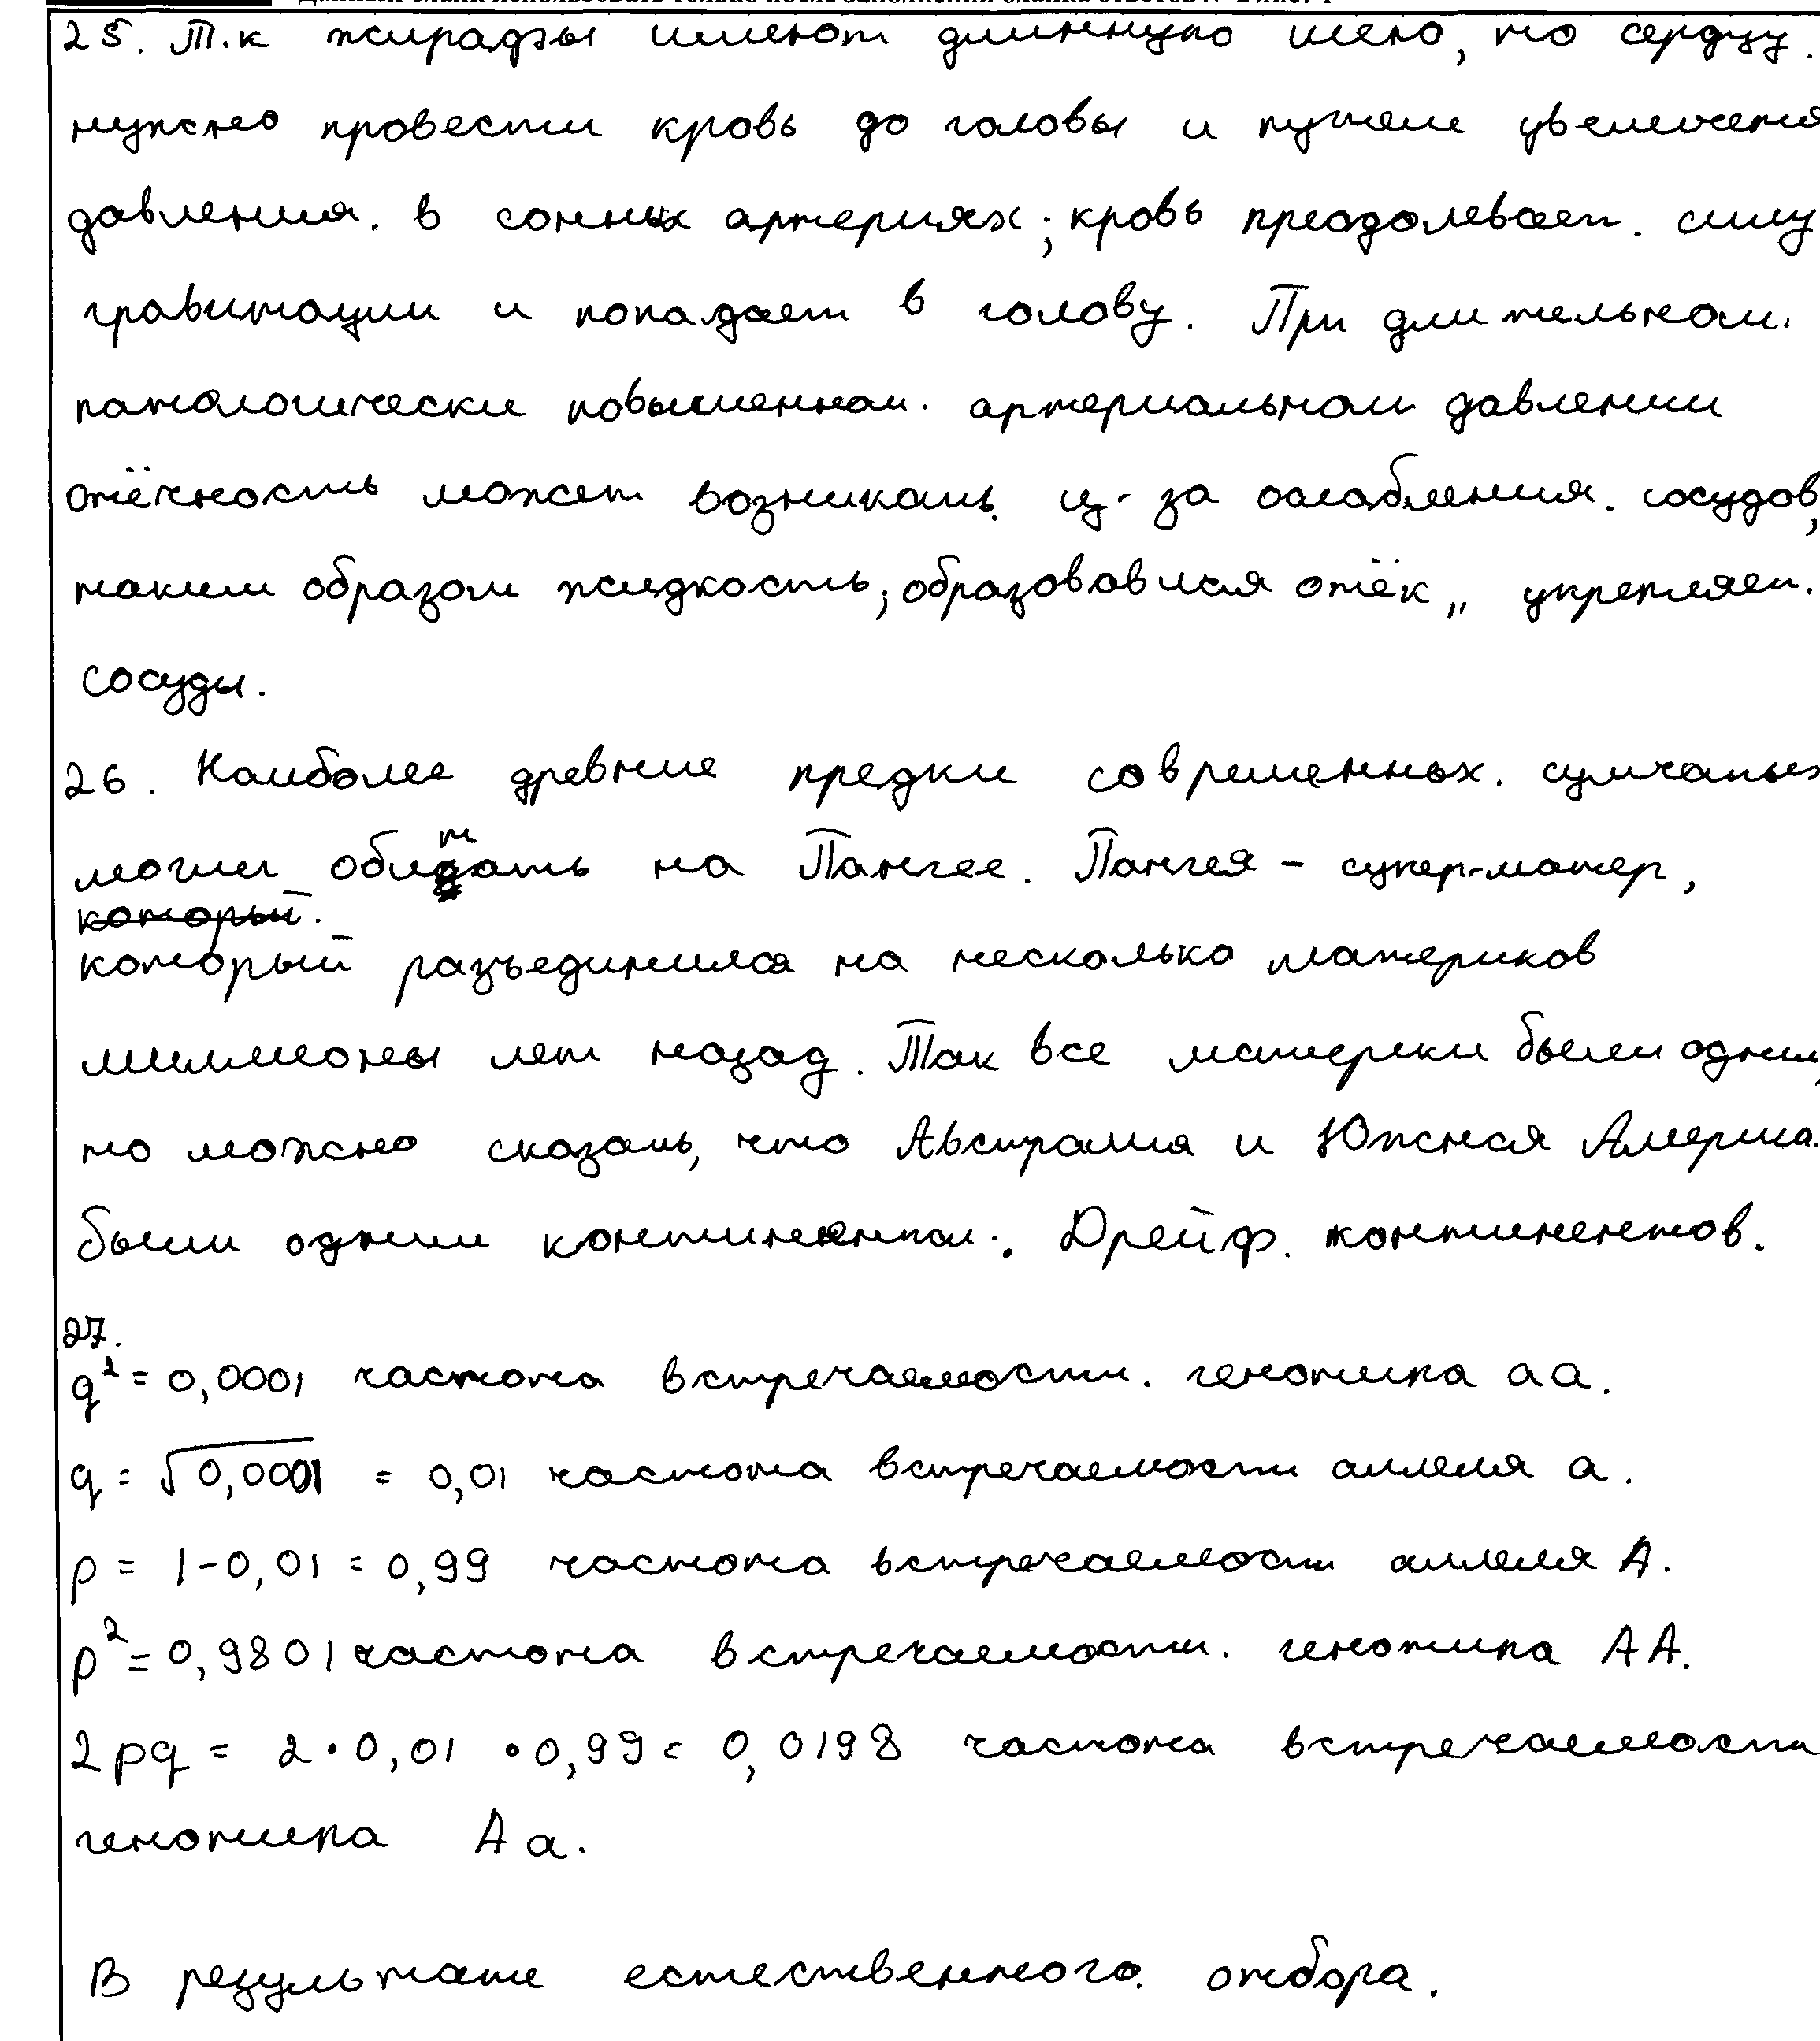 25. Т.к жирафы имеют длинную шею, то сердцу.
нужно провести кровь до головы и путём увеличения
давления. в сонных артериях; кровь преодолевает. силу
гравитации и попадает в голову. При длительном.
патологически повышенном. артериальном давлении
отёчность может возникать. из-за ослабления. сосудов,
таким образом жидкость, образовавшая отёк,, укрепляет.
сосуды.
26. Наиболее древние предки современных. сумчатых
могли обитать на Пангее. Пангея - супер-матер,
который.
который разъединился на несколько материков
миллионы лет назад. Так все материки были одним,
то можно сказать, что Австралия и Южная Америка.
были одним континентом. Дрейф. континентов.
27.
q² = 0,0001 частота встречаемости. генотипа aa.
q = √0,0001 = 0,01 частота встречаемости аллеля a.
p = 1-0,01 = 0,99 частота встречаемости аллеля A.
p² = 0,9801 частота встречаемости. генотипа AA.
2pq = 2 • 0,01 • 0,99 = 0,0198 частота встречаемости
генотипа Aa.
В результате естественного. отбора.